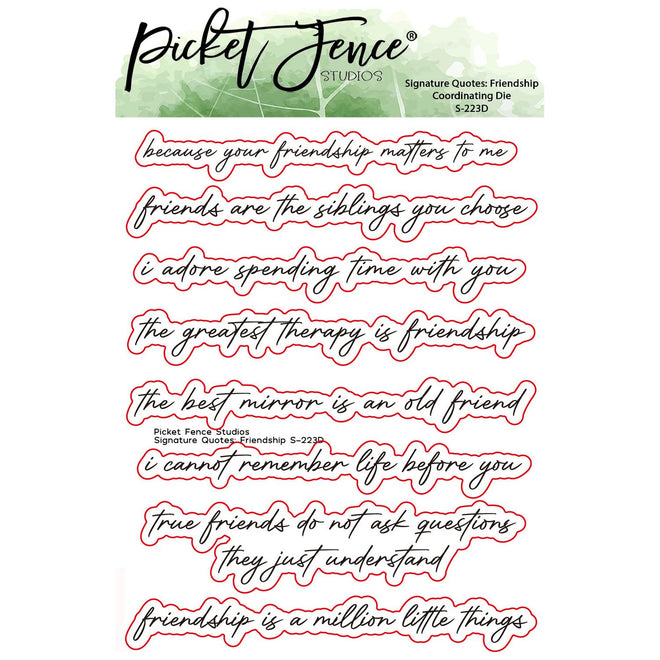 Picket Fence®
STUDIOS
Signature Quotes: Friendship
Coordinating Die
S-223D
because your friendship matters to me
friends are the siblings you choose
i adore spending time with you
the greatest therapy is friendship
the best mirror is an old friend
Picket Fence Studios
Signature Quotes: Friendship S-223D
i cannot remember life before you
true friends do not ask questions
they just understand
friendship is a million little things